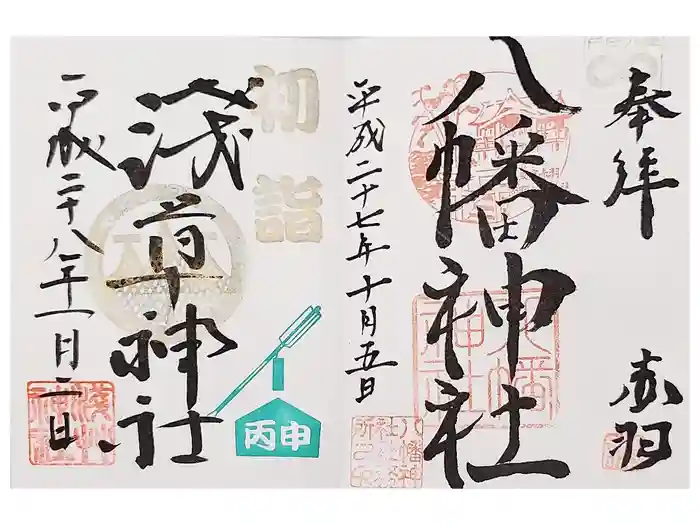 奉拝
赤羽
八幡神社
平成二十七年十月五日
初詣
浅草神社
丙申
平成二十八年一月二日